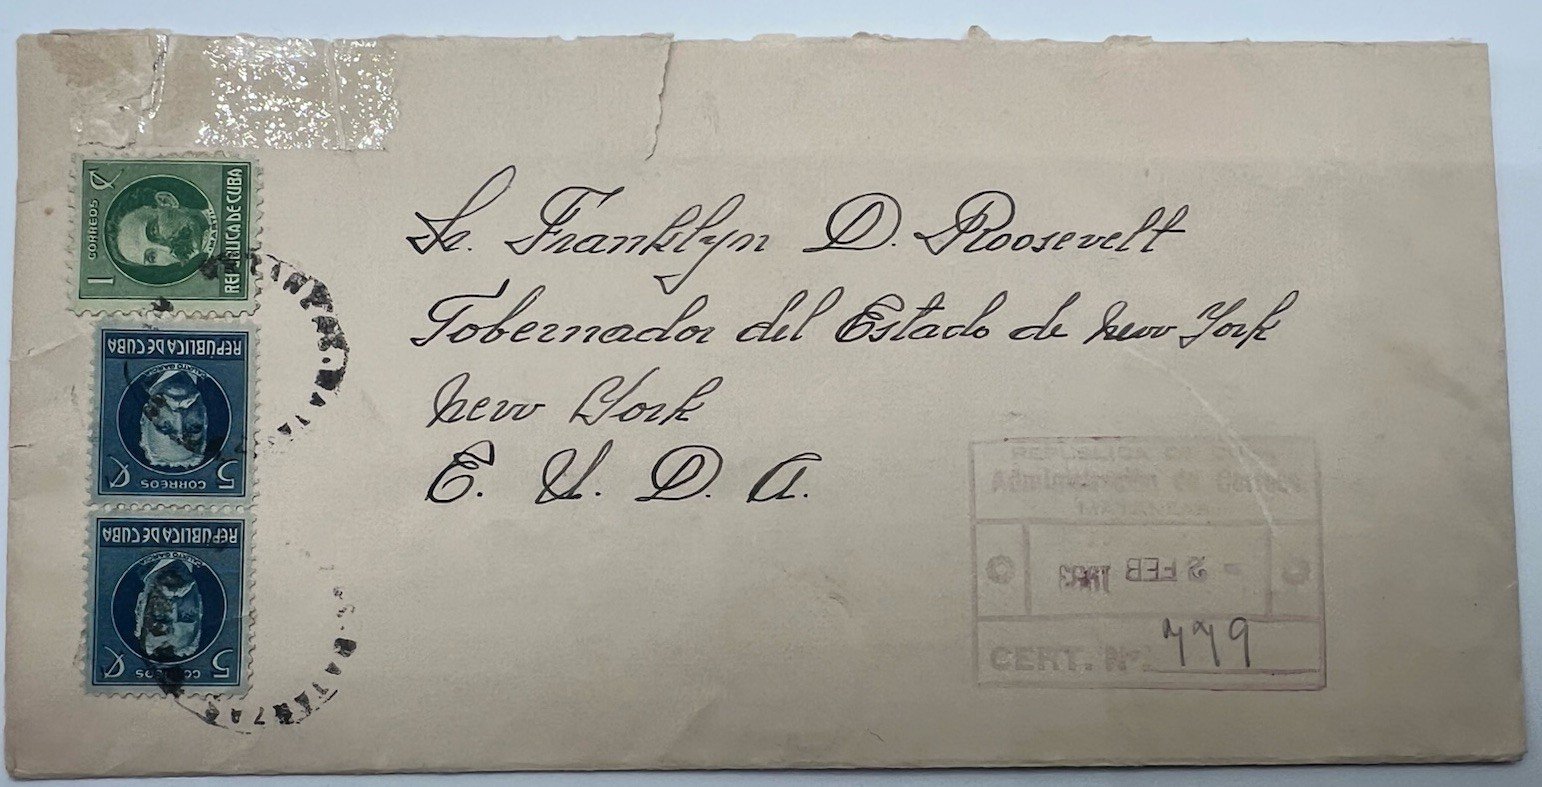 1 ¢
CORREOS
REPUBLICA DE CUBA
REPUBLICA DE CUBA
CALIXTO GARCIA
5 ¢
CORREOS
REPUBLICA DE CUBA
CALIXTO GARCIA
5 ¢
CORREOS
Sr. Franklyn D. Roosevelt
Gobernador del Estado de New York
New York
E. U. D. A.
REPUBLICA DE CUBA
Administración de Correos
MATANZAS
- 2 FEB
CERT. Nº 779